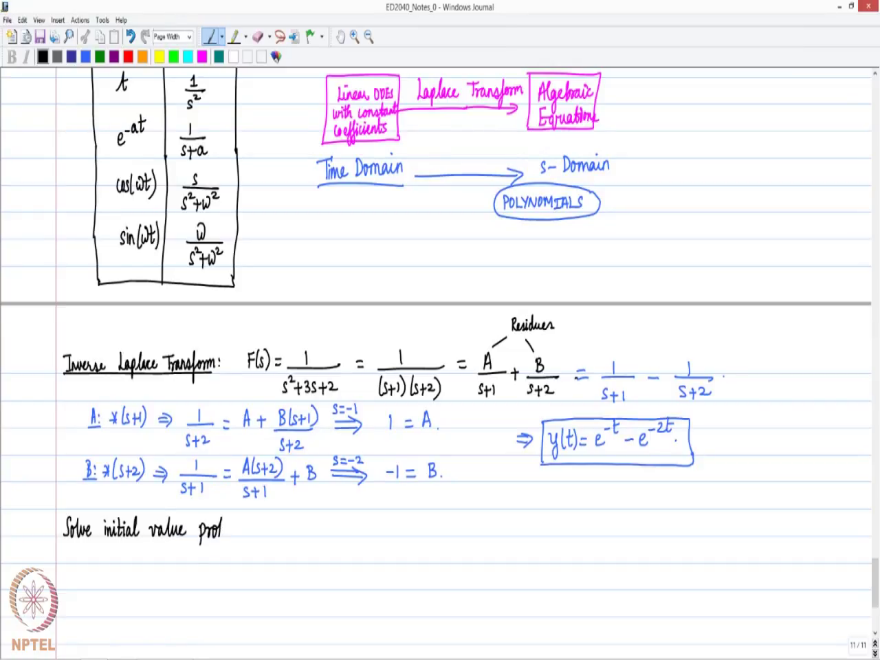 ED2040_Notes_0 - Windows Journal
File Edit View Insert Actions Tools Help
Page Width
B I
t 1/s²
e^-at 1/(s+a)
cos(ωt) s/(s²+ω²)
sin(ωt) ω/(s²+ω²)
Linear ODEs
with constant
coefficients
Laplace Transform
Algebraic
Equations
Time Domain
s- Domain
POLYNOMIALS
Residues
Inverse Laplace Transform: F(s) = 1/(s²+3s+2) = 1/((s+1)(s+2)) = A/(s+1) + B/(s+2) = 1/(s+1) - 1/(s+2).
A: *(s+1) ⇒ 1/(s+2) = A + B(s+1)/(s+2) s=-1 ⇒ 1 = A.
⇒ y(t) = e^-t - e^-2t.
B: *(s+2) ⇒ 1/(s+1) = A(s+2)/(s+1) + B s=-2 ⇒ -1 = B.
Solve initial value prol
NPTEL
11 / 11